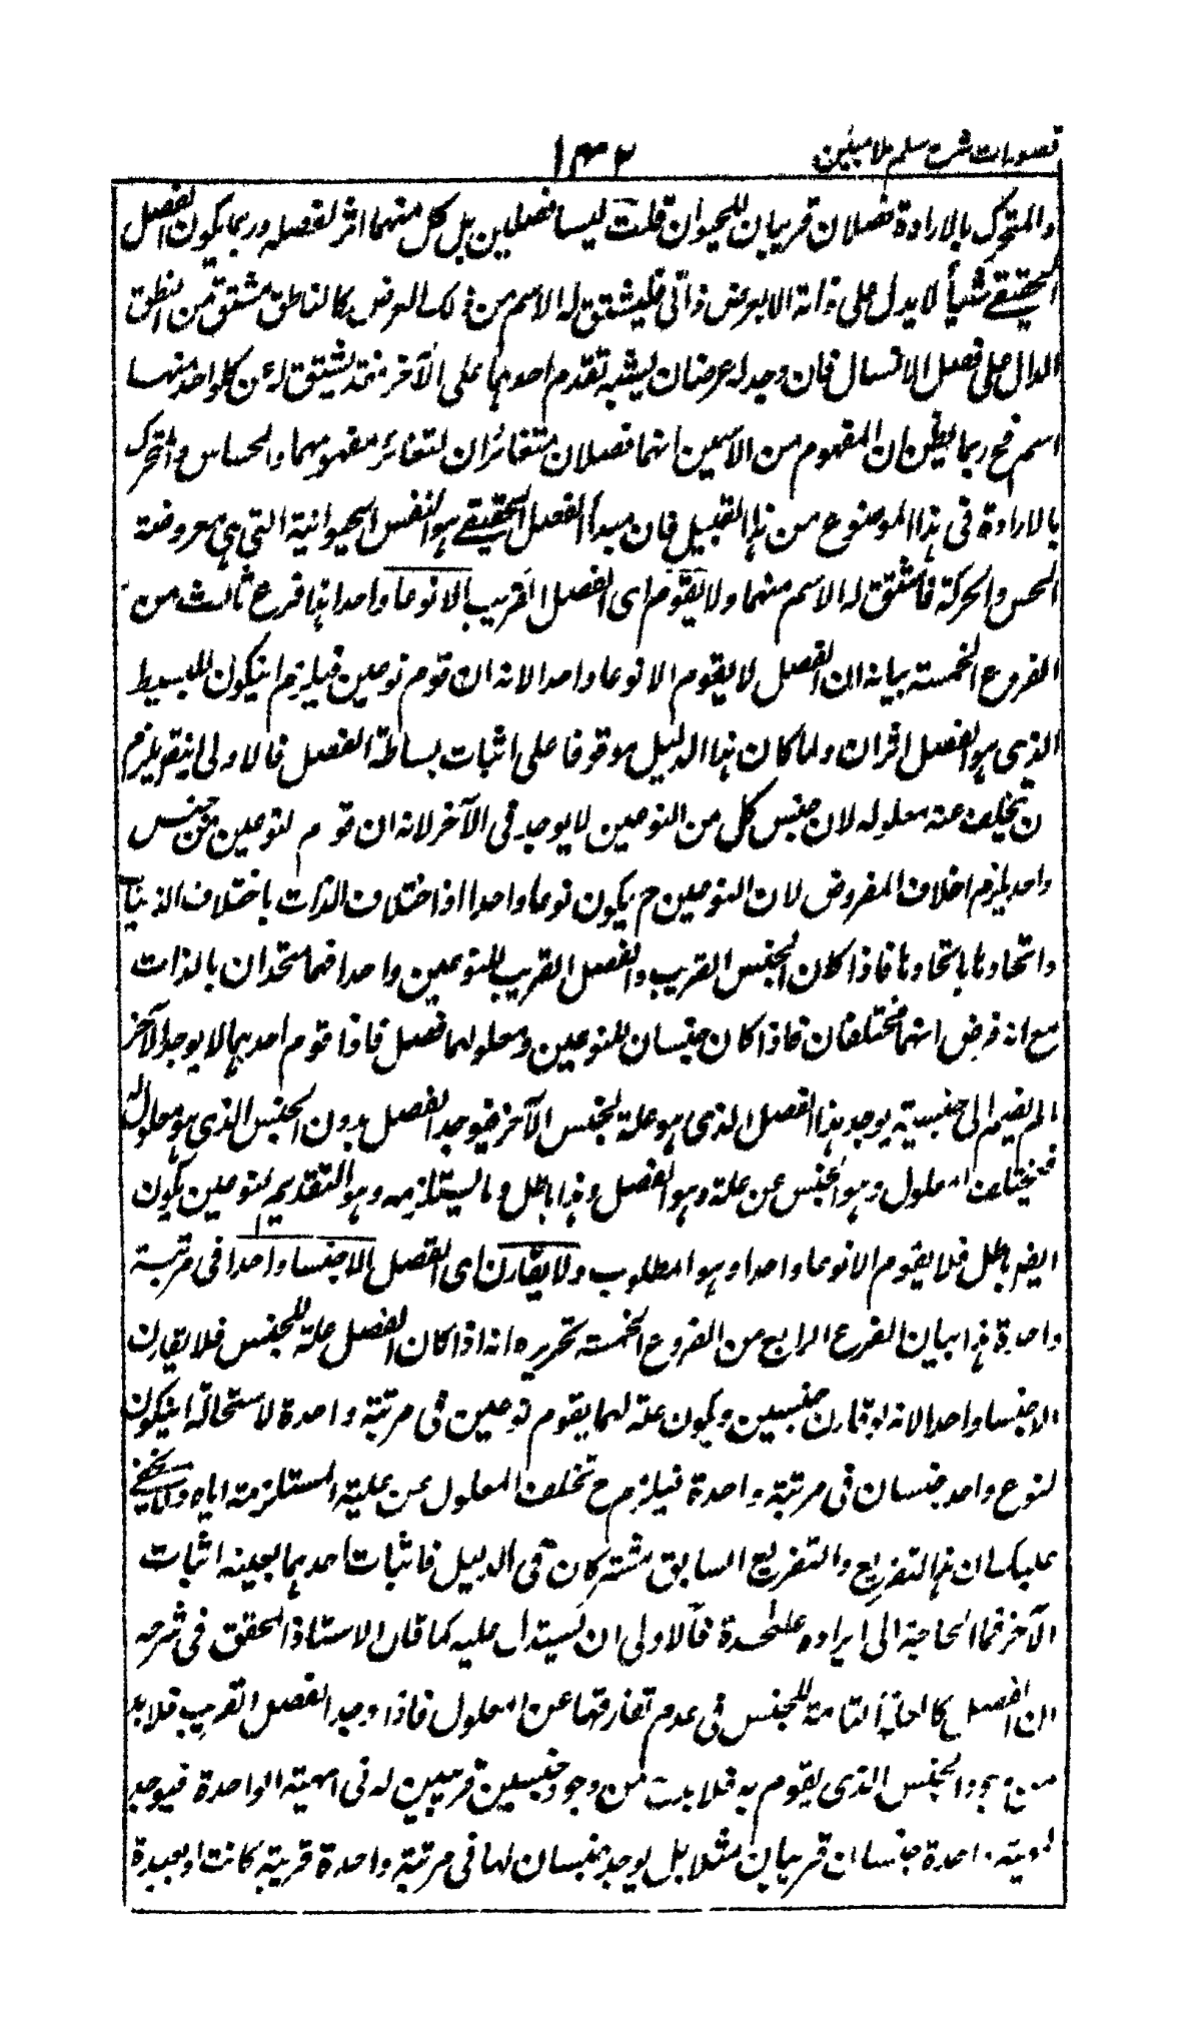 تصورات شرح سلم ملا مبین
۱۳۲
والمتحرک بالارادة فصلان قریبان للحیوان قلت لیسا فصلین بل کل منهما اثر لفصله وربما یکون الفصل
الحقیقے شیأ لا یدل علی ذاته الا بعرض ذاتی فلیشتق له الاسم من ذلک العرض کالناطق مشتق من النطق
الدال علی فصل الانسان فان وجد له عرضان یشبه تقدم احدهما علی الآخر فقد یشتق له من کل واحد منهما
اسم فح ربما یظن ان المفهوم من الاسمین انهما فصلان متغائران لتغائر مفهومهما والحساس والمتحرک
بالارادة فی هذا الموضوع من هذا القبیل فان مبدأ الفصل الحقیقے هو النفس الحیوانیة التی هی معروضة
الحس والحرکة فاشتق له الاسم منهما ولا یقوم ای الفصل القریب الا نوعا واحدا هذا فرع ثالث من
الفروع الخمسة بیانه ان الفصل لا یقوم الا نوعا واحدا لانه ان قوم نوعین فیلزم ان یکون للبسیط
الذی هو الفصل اثران ولما کان هذا الدلیل موقوفا علی اثبات بساطة الفصل فالاولی ان یقر یلزم
ن تخلف عنه معلوله لان جنس کل من النوعین لا یوجد فی الآخر لانه ان قوم لنوعین من جنس
واحد یلزم اخلاف المفروض لان النوعین ح یکون نوعا واحدا اذ اختلاف الذات باختلاف الذاتیات
واتحادها باتحادها فاذا کان الجنس القریب والفصل القریب للنوعین واحدا فهما متحدان بالذات
مع انه فرض انهما مختلفان فاذا کان جنسان للنوعین ومعلولهما فصل فاذا قوم احدهما لا یوجد الآخر
الم یضم الی جنسیة یوجد هذا الفصل الذی هو علة لجنس الآخر فیوجد الفصل بدون الجنس الذی هو معلول له
فیتخلف المعلول وهو الجنس عن علة وهو الفصل وهذا باطل وما یستلزمه وهو التقدیم لنوعین یکون
ایضر باطل فلا یقوم الا نوعا واحدا وهو المطلوب ولا یقارن ای الفصل الا جنسا واحدا فی مرتبة
واحدة هذا بیان الفرع الرابع من الفروع الخمسة تحریره انه اذا کان الفصل علة للجنس فلا یقارن
الا جنسا واحدا لانه لو قارن جنسین ویکون علة لهما یقوم نوعین فی مرتبة واحدة لاستحالة ان یکون
لنوع واحد جنسان فی مرتبة واحدة فیلزم ح تخلف المعلول عن علیة المستلزمة ایاه ولا یخفے
علیک ان هذا التفریع والتفریع السابق مشترکان فی الدلیل فاثبات احدهما بعینه اثبات
الآخر فما الحاجة الی ایراده علٰحدة فالاولی ان یستدل علیه کما قال الاستاذ المحقق فی شرحه
ان الفصل کالعلة التامة للجنس فی عدم تفارقها عن المعلول فاذا وجد الفصل القریب فلابد
من وجود الجنس الذی یقوم به فلابد من وجود جنسین قریبین له فی المهیة الواحدة فیوجد
لمهیة واحدة جنسان قریبان مثلا بل یوجد جنسان لها فی مرتبة واحدة قریبة کانت او بعیدة